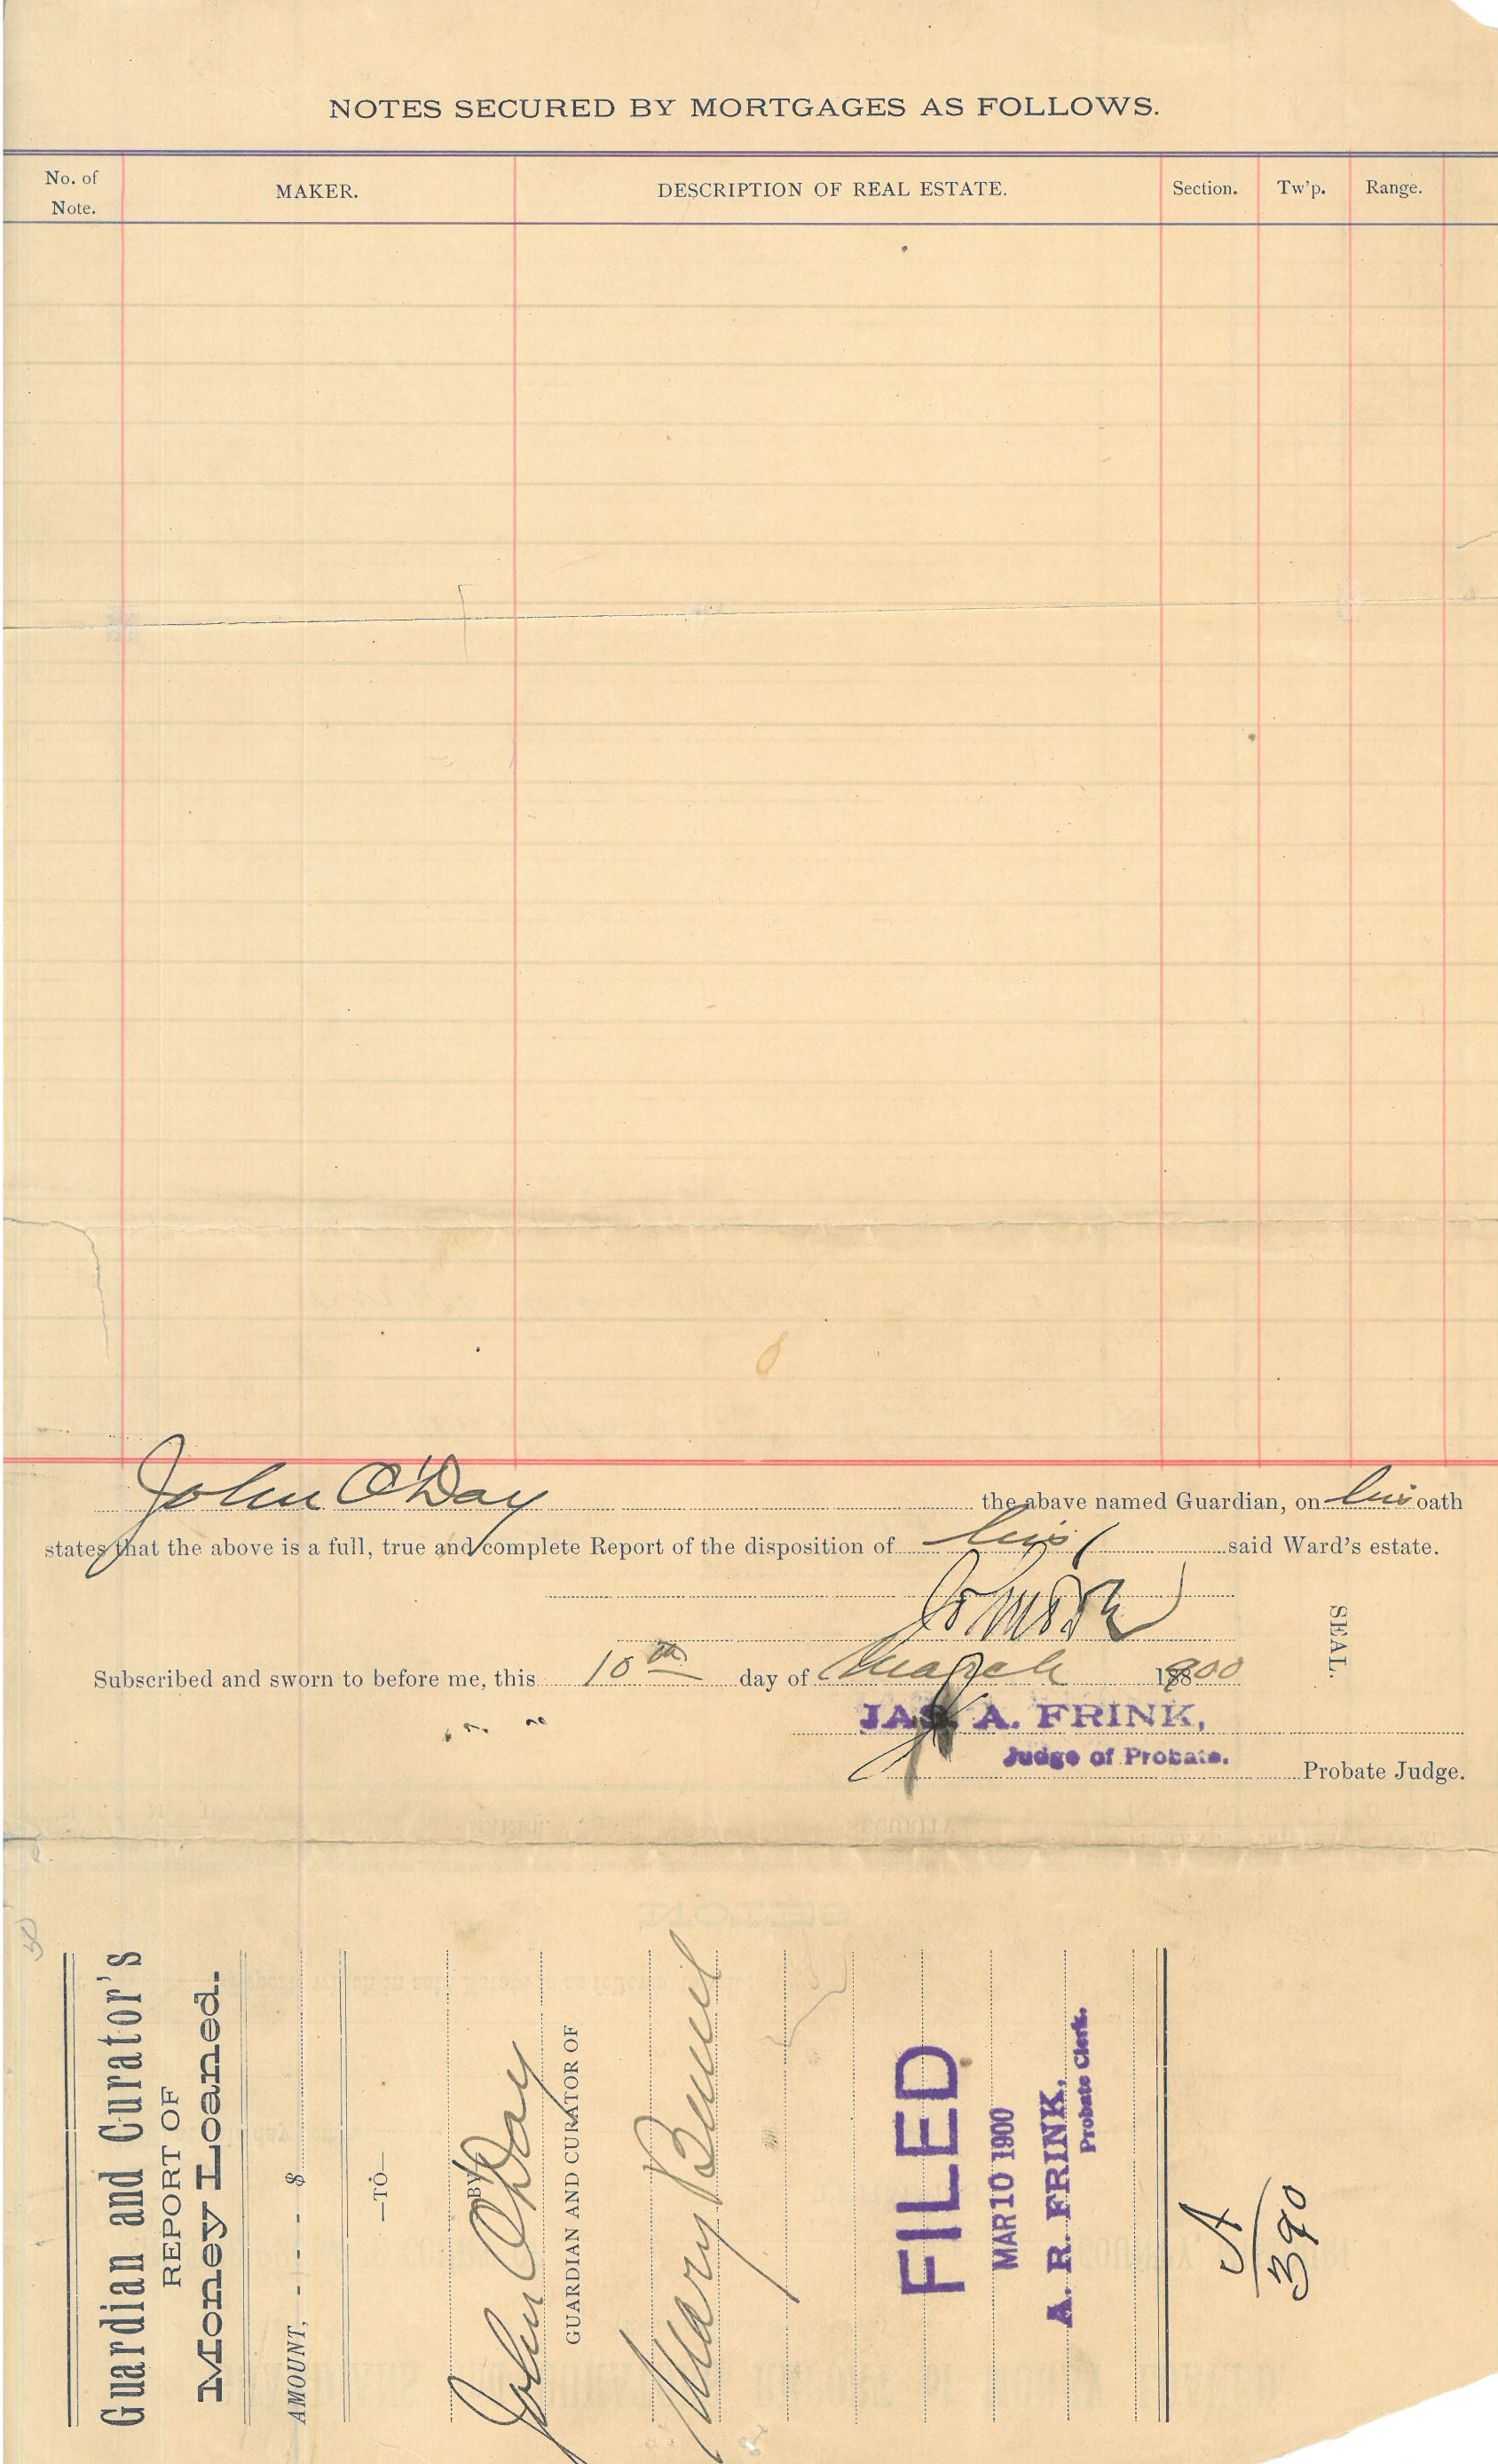 NOTES SECURED BY MORTGAGES AS FOLLOWS.
No. of Note. MAKER. DESCRIPTION OF REAL ESTATE. Section. Tw'p. Range.
John O'Day the above named Guardian, on his oath
states that the above is a full, true and complete Report of the disposition of his said Ward's estate.
SEAL.
Subscribed and sworn to before me, this 10th day of March 1900
JAS. A. FRINK,
Judge of Probate.
Probate Judge.
Guardian and Curator's
REPORT OF
Money Loaned.
AMOUNT, - - - - $
—TO—
BY
John O'Day
GUARDIAN AND CURATOR OF
Mary
FILED
MAR 10 1900
A. R. FRINK,
Probate Clerk.
A
390